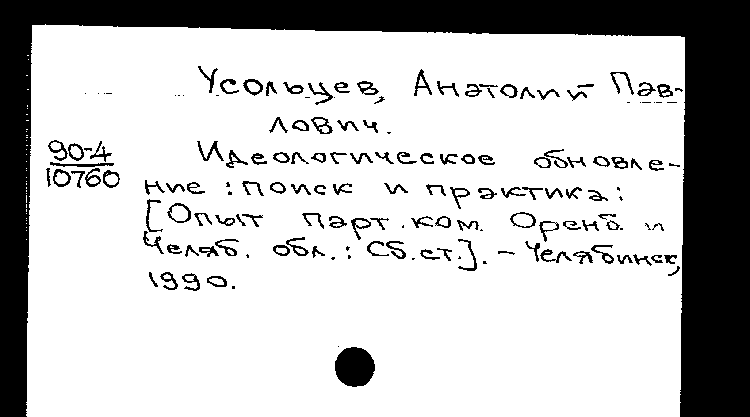 Усольцев, Анатолий Пав-
лович.
90-4
10760
Идеологическое обновле-
ние : поиск и практика :
[Опыт парт. ком. Оренб. и
Челяб. обл. : Сб. ст.]. – Челябинск,
1990.